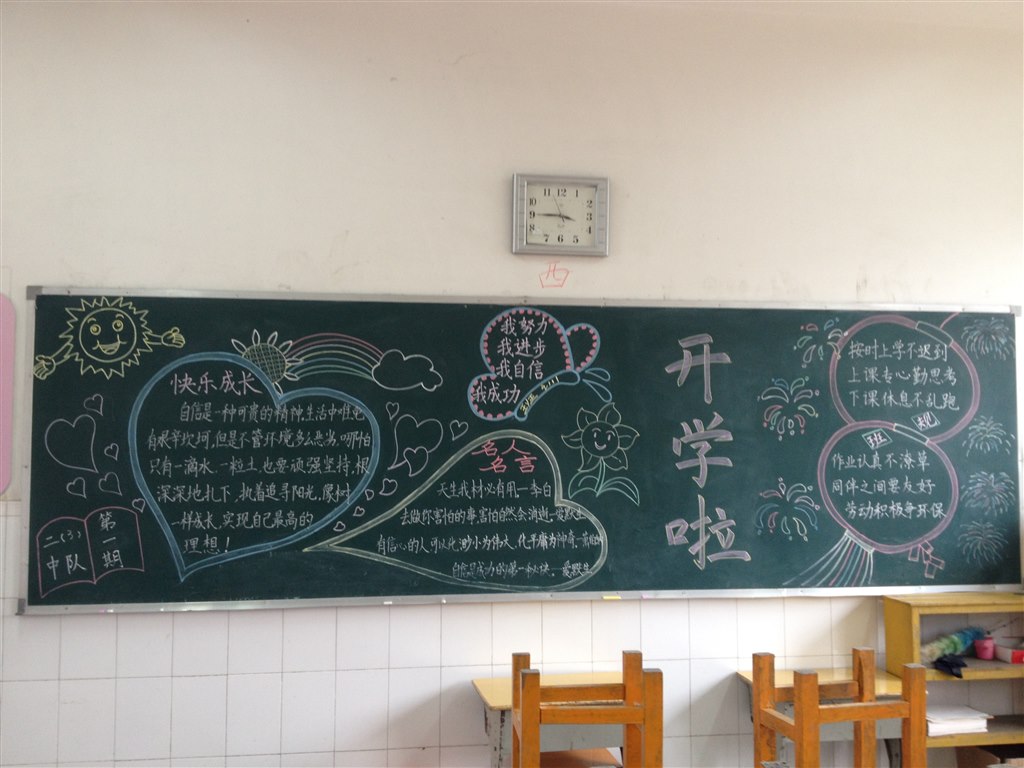 11 12 1
10 2
9 3
8 4
7 6 5
快乐成长
自信是一种可贵的精神,生活中难免
有艰辛坎坷,但是不管环境多么恶劣,哪怕
只有一滴水、一粒土,也要顽强坚持,根
深深地扎下,执着追寻阳光,像树
一样成长,实现自己最高的
理想!
二(3)
中队
第一期
我努力
我进步
我自信
我成功
名人
名言
天生我材必有用—李白
去做你害怕的事,害怕自然会消逝—爱默生
自信心的人可以化渺小为伟大,化平庸为神奇
自信是成功的第一秘诀—爱默生
开学啦
按时上学不迟到
上课专心勤思考
下课休息不乱跑
班规
作业认真不潦草
同伴之间要友好
劳动积极争环保